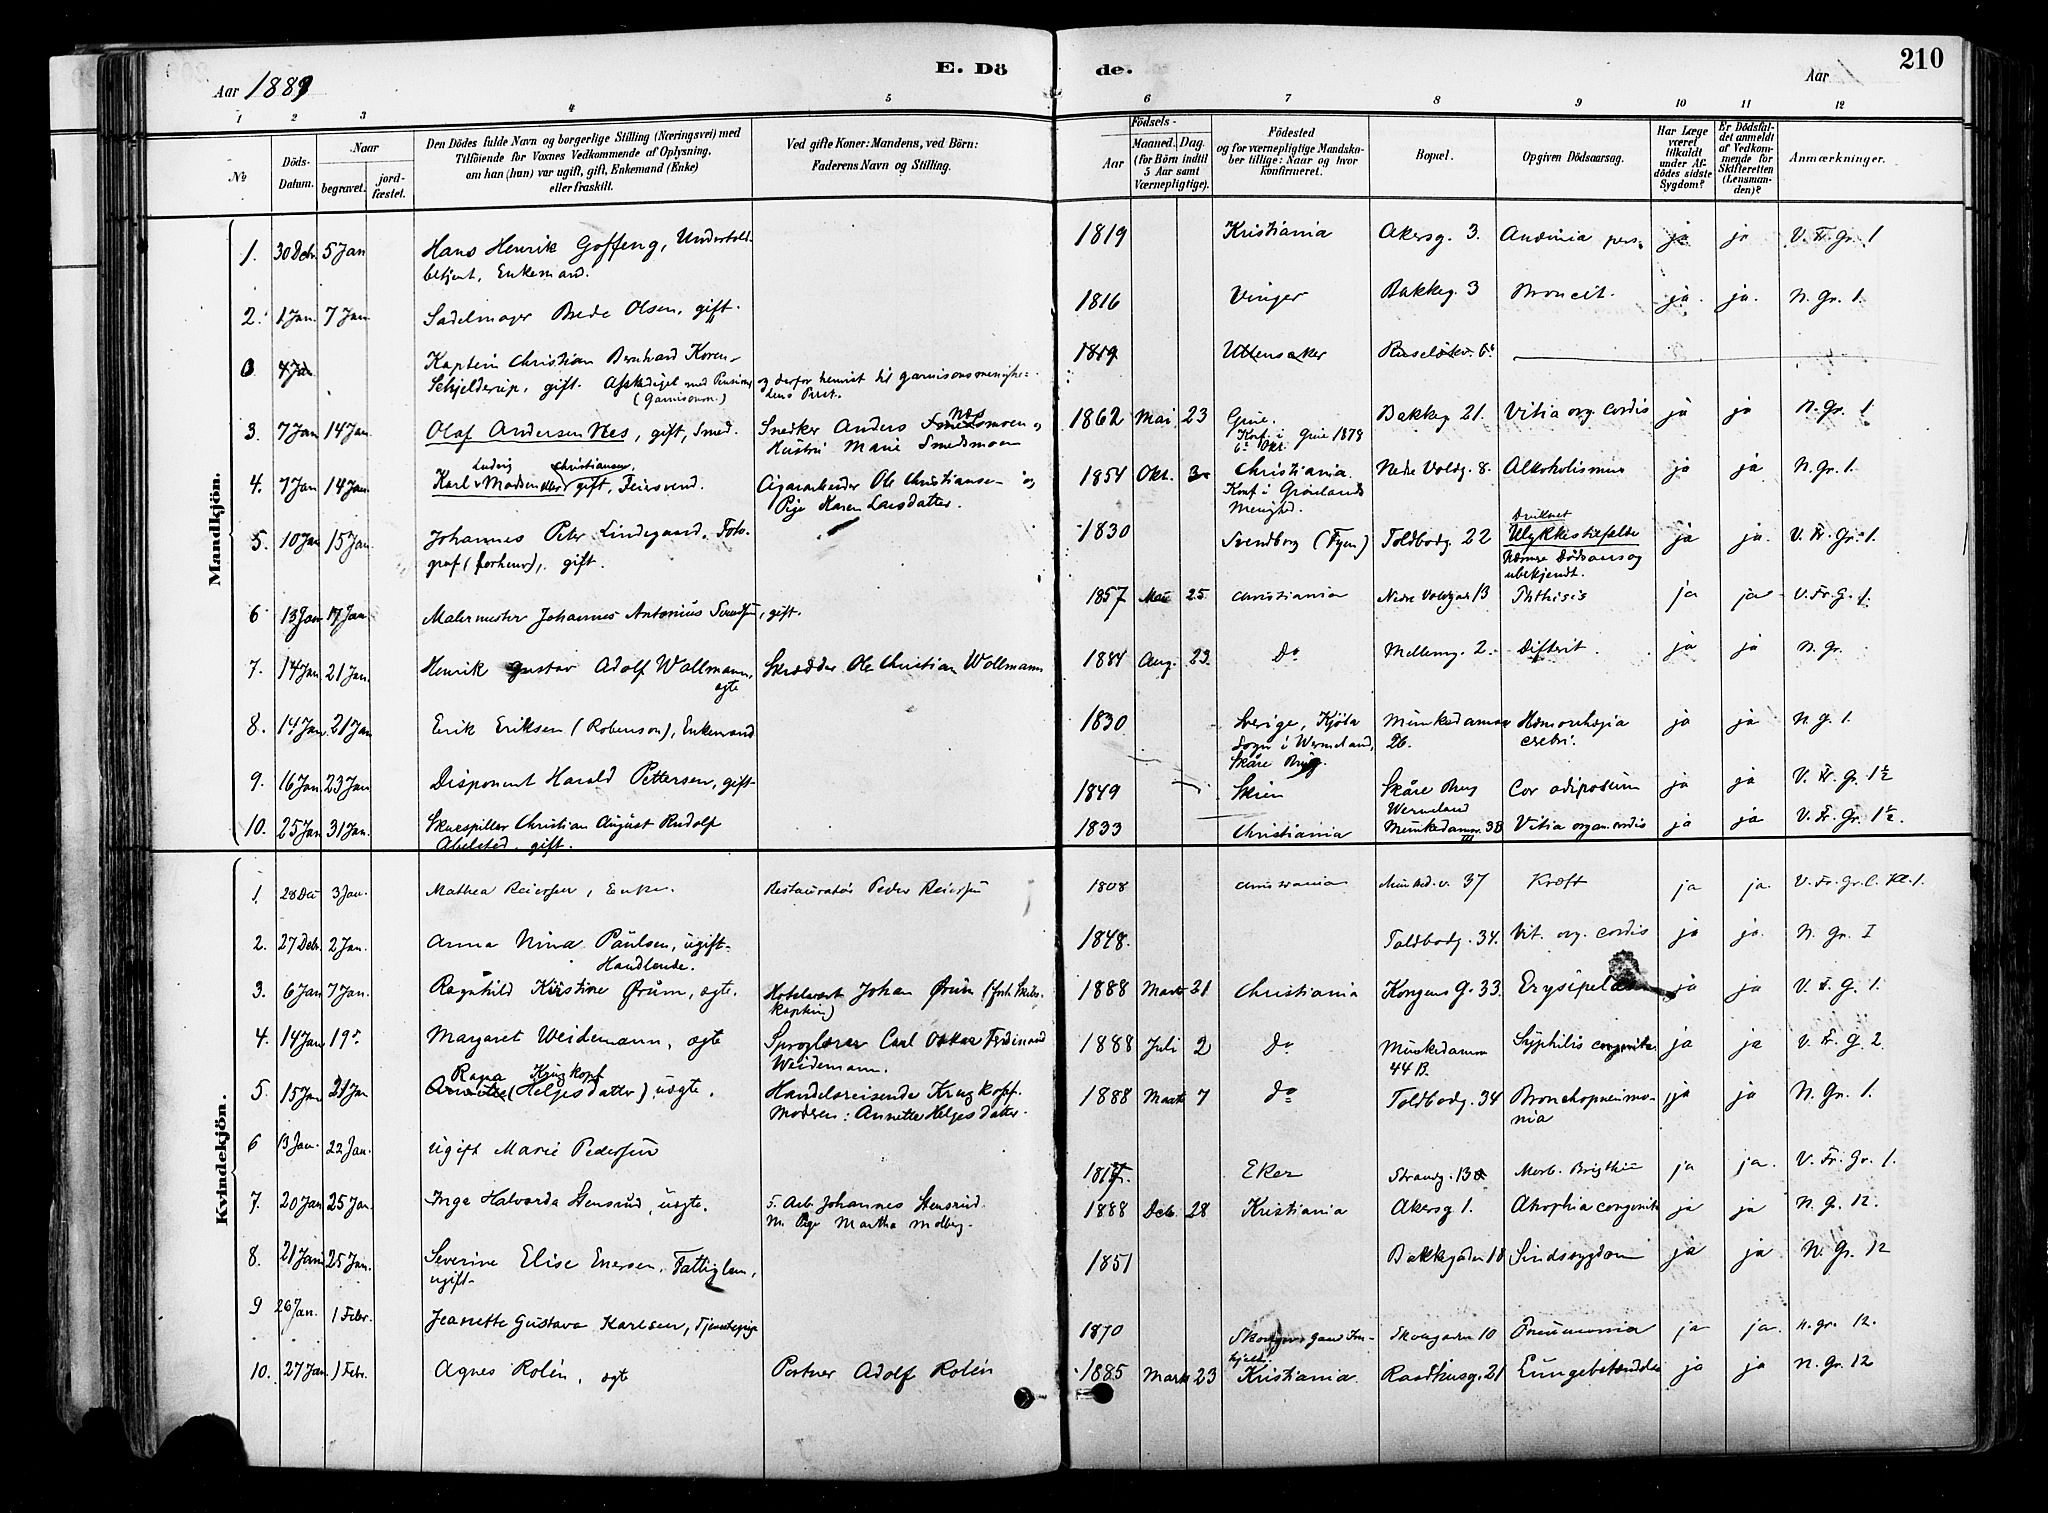 E. Dö de.
210
Aar 1889
Aar
1 2 3 4 5 6 7 8 9 10 11 12
No
Döds-Datum.
Naar
begravet.
jord-fæstet.
Den Dödes fulde Navn og borgerlige Stilling (Næringsvei) med
Tilföiende for Voxnes Vedkommende af Oplysning,
om han (hun) var ugift, gift, Enkemand (Enke)
eller fraskilt.
Ved gifte Koner: Mandens, ved Börn:
Faderens Navn og Stilling.
Födsels-
Aar
Maaned. Dag.
(for Börn indtil
5 Aar samt
Værnepligtige).
Födested
og for værnepligtige Mandska-
ber tillige: Naar og hvor
konfirmeret.
Bopæl.
Opgiven Dödsaarsag.
Har Læge
været
tilkaldt
under Af-
dödes sidste
Sygdom?
Er Dödsfal-
det anmeldt
af Vedkom-
mende for
Skifteretten
(Lensman-
den)?
Anmærkninger.
Mandkjön.
1. 30 Dcbr. 5 Jan Hans Henrik Goffeng, Undertold- 1819 Kristiania Akersg. 3. ja ja V. Fr. Gr. 1
betjent, Enkemand.
2. 1 Jan. 7 Jan Sadelmager Brede Olsen, gift. 1816 Vinger Bakkeg. 3 ja ja. N. Gr. 1.
0 4 Jan Kaptein Christian Bernhard Koren- 1819 Ullensaker
Schjelderup, gift. Afskediget med Pension og derfor henvist til garnisonsmenighe-
(Garnisonen.) dens Præst.
3. 7 Jan 14 Jan. Olaf Andersen Nes, gift, Smed. Snedker Anders Nes Smedsmoen og 1862 Mai 23 Grue. Bakkeg 21. Vitia org. cordis ja ja N. Gr. 1
Hustru Marie Smedsmoen Konf. i Grue 1878
6 Okt.
4. 7 Jan 14 Jan. Karl Ludvig Madsen eller Christiansen, gift, Feiersvend. Cigararbeider Ole Christiansen og 1854 Okt. 30 Christiania. Nedre Voldg. 8. Alkoholismus ja ja N. Gr. 1.
Pige Karen Larsdatter. Konf i Grønlands
Menighed.
5. 10 Jan 15 Jan. Johannes Peter Lindegaard, Foto- 1830 Svendborg (Fyen) Toldbodg. 22 Druknet Ulykkestilfælde ja ja. V. Fr. Gr. 1.
graf (forhenv), gift. Nærmere Dødsaarsag
ubekjendt.
6 13 Jan 17 Jan. Malermester Johannes Antonius Svendsen, gift. 1857 Mai 25 Christiania Nedre Voldgade 13 Phthisis ja ja V. Fr. G. 1.
7. 14 Jan 21 Jan. Henrik Gustav Adolf Wollmann, Skrædder Ole Christian Wollmann 1884 Aug. 23. Do Mellemg. 2. Difterit. ja ja N. Gr.
ægte
8. 14 Jan. 21 Jan Erik Eriksen (Robertson), Enkemand 1830 Sverige, Munkedamsv Hæmorrhagia ja ja N. G. 1.
Sogn i Wermeland, 26. crebri.
Skåre Brug.
9. 16 Jan 23 Jan Disponent Harald Pettersen, gift 1849 Skien Skåre Brug Cor adiposum ja ja V. Fr. Gr. 1½
Wermeland
10. 25 Jan 31 Jan. Skuespiller Christian August Rudolf 1833 Christiania Munkedamsv. 3B Vitia organ. cordis ja ja V. Fr. Gr. 1½.
Abelsted, gift. III
Kvindekjön.
1. 28 De 3 Jan. Mathea Reiersen, Enke. Restauratør Peder Reiersen 1808 Christiania Munked.v. 37 Kræft ja ja. V. Fr. Gr. C. Kl. 1.
2. 27 Debr. 2 Jan. Anna Nina Paulsen, ugift 1848. Toldbodg. 34. Vit. org. cordis ja ja. N. Gr. I
Handlende.
3. 6 Jan 7 Jan. Ragnhild Kristine Ørum, ægte. Hotelvært Johan Ørum (forh. Skibs- 1888 Marts 21 Christiania Kongens G. 33. Erysipelas ja ja V. F. G. 1.
kaptein)
4. 14 Jan 19 Margaret Weidemann, ægte Sproglærer Carl Oskar Ferdinand 1888 Juli 2 Do Munkedamsv Syphilis congenita ja ja V. Fr. G. 2.
Weidemann. 44 B.
5. 15 Jan 21 Jan Ragna Krugkopf (Helgesdatter) uægte. Handelsreisende Krugkopf. 1888 Marts 7 do Toldbodg. 34 Bronchopneumo- ja ja N. Gr. 1.
Moderen: Annette Helgesdatter. nia
6 13 Jan. 22 Jan. ugift Marie Pedersen 1817. Eker Strandg. 13 Morb. Brigthii ja ja. V. Fr. Gr. 1.
7. 20 Jan 25 Jan. Inga Halvarda Stensrud, uægte. F. Arb. Johannes Stensrud. 1888 Debr. 28 Kristiania Akersg 1. Atrophia congenita ja ja N. G. 12.
M. Pige Martha Moberg.
8. 21 Jan 25 Jan. Severine Elise Enersen, Fattiglem, 1851 Bakkegaden 18 Sindssygdom ja ja. N. Gr. 12
ugift.
9 26 Jan. 1 Febr. Jeanette Gustava Karlsen, Tjenestepige 1870 Skovgaden 10 Pneumonia ja ja. N. gr. 12.
10. 27 Jan. 1 Febr. Agnes Rolén, ægte Portner Adolf Rolén 1885 Marts 23 Kristiania. Raadhusg. 21 Lungebetændelse ja ja N. Gr. 12